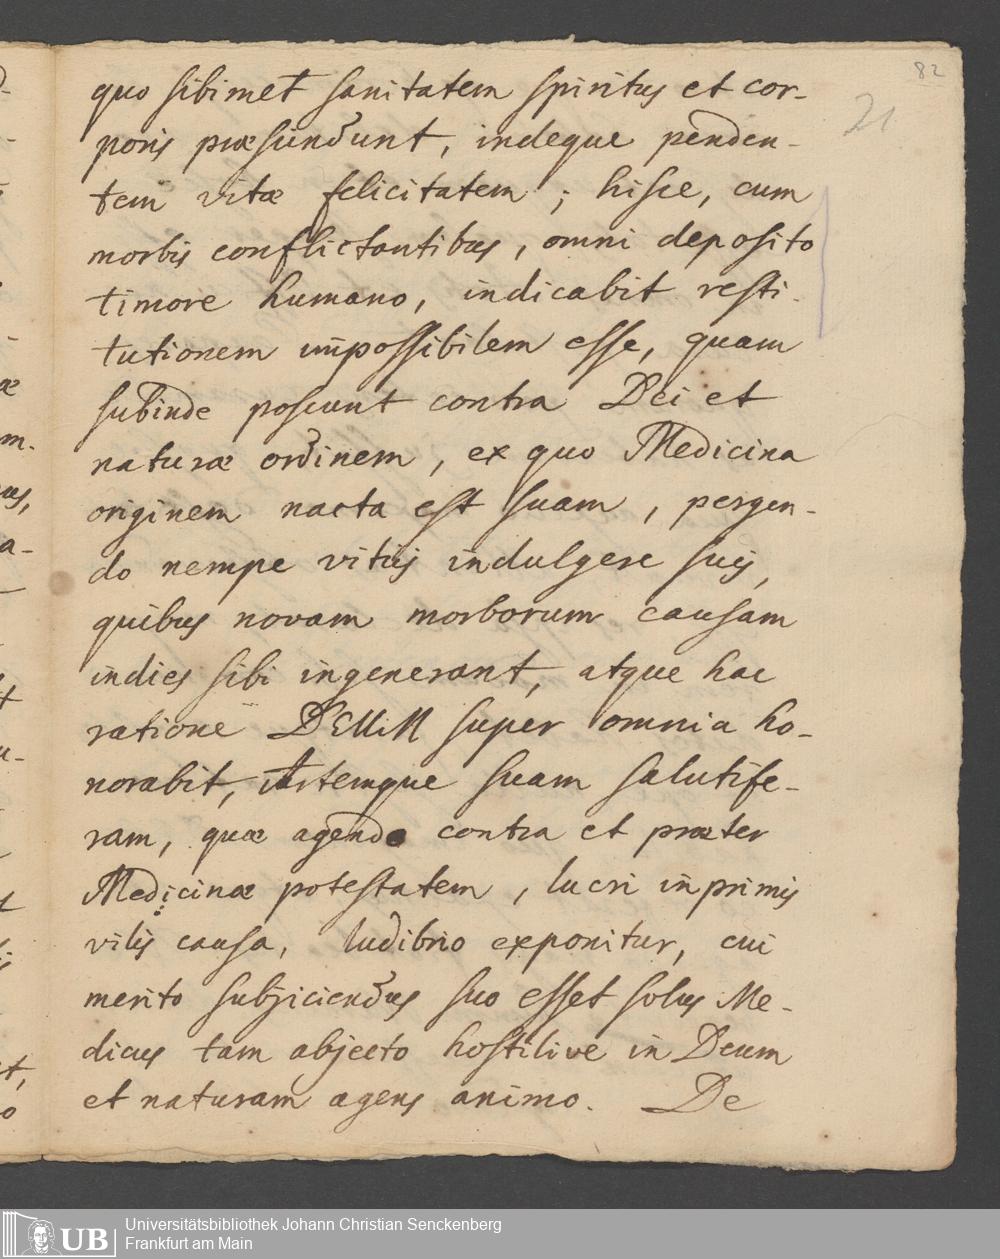 82
21
quo sibimet sanitatem spiritus et cor-
poris præfundunt, indeque penden-
tem vitæ felicitatem; hisce, cum
morbis conflictantibus, omni deposito
timore humano, indicabit resti-
tutionem impossibilem esse, quam
subinde poscunt contra Dei et
naturæ ordinem, ex quo Medicina
originem nacta est suam, pergen-
do nempe vitiis indulgere suis,
quibus novam morborum causam
indies sibi ingenerant, atque hac
ratione DEUM super omnia ho-
norabit, Artemque suam salutife-
ram, quæ agendo contra et præter
Medicinæ potestatem, lucri inprimis
vilis causa, ludibrio exponitur, cui
merito subjiciendus suo esset solus Me-
dicus tam abjecto hostilive in Deum
et naturam agens animo. De
UB
Universitätsbibliothek Johann Christian Senckenberg
Frankfurt am Main